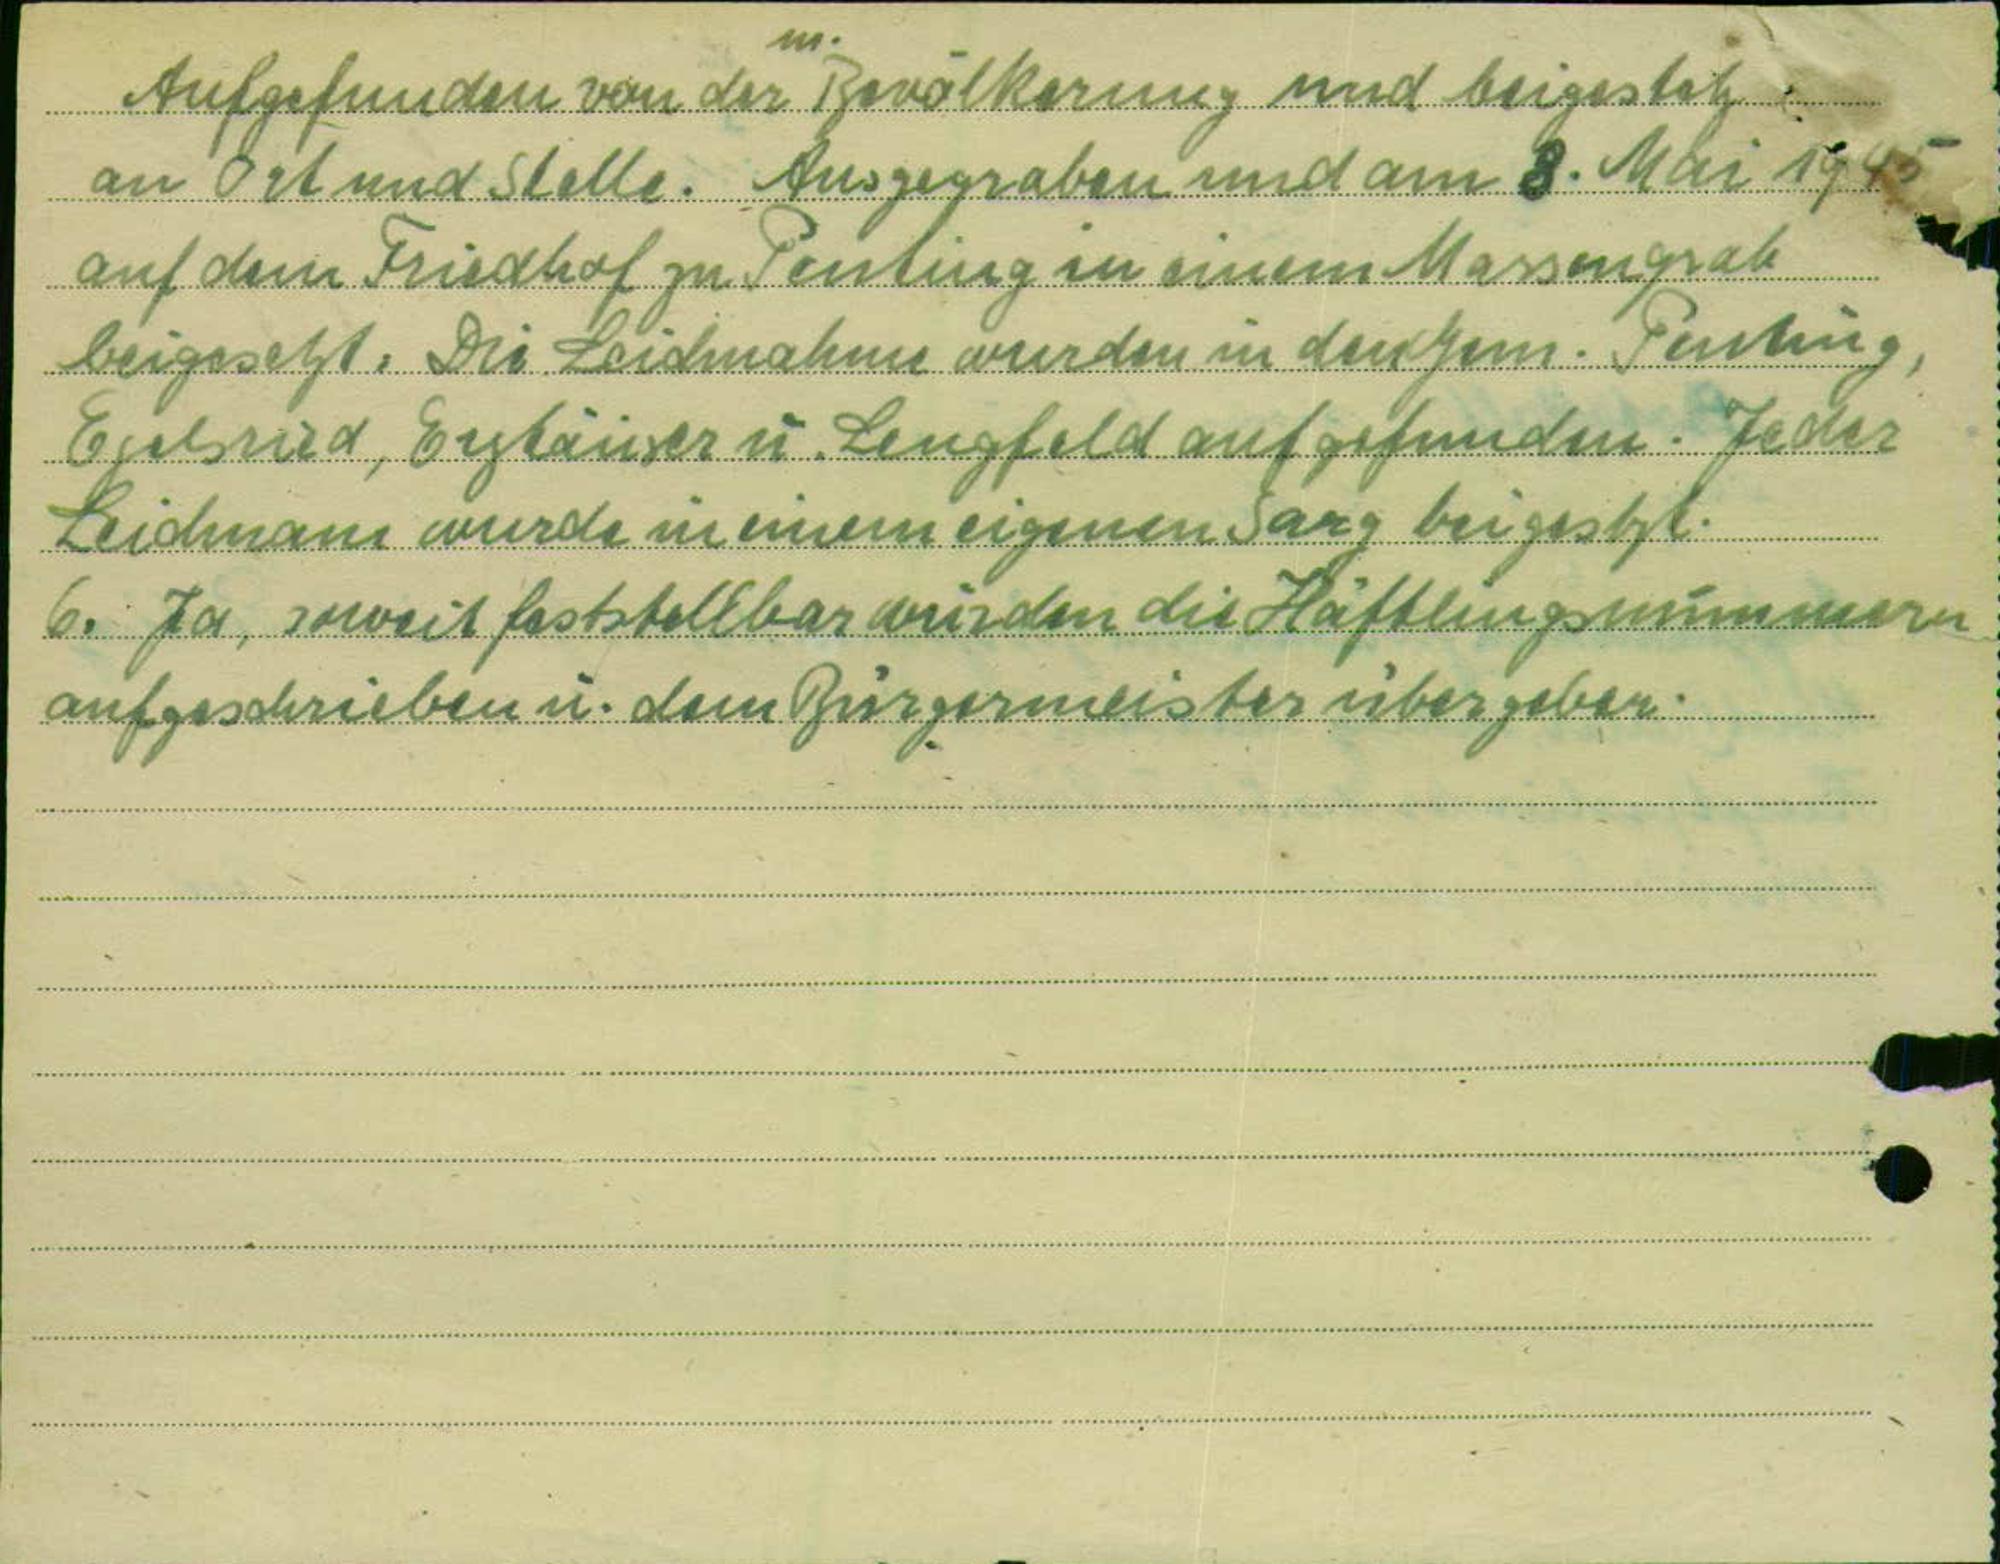 m.
Aufgefunden von der Bevölkerung und beigesetz
an Ort und Stelle. Ausgegraben und am 8. Mai 1945
auf dem Friedhof zu Penting in einem Massengrab
beigesetzt. Die Leichname wurden in den Gem. Penting,
Egelsried, Erzhäuser u. Lengfeld aufgefunden. Jeder
Leichnam wurde in einem eigenen Sarg beigesetzt.
6. Ja, soweit feststellbar wurden die Häftlingsnummern
aufgeschrieben u. dem Bürgermeister übergeben.